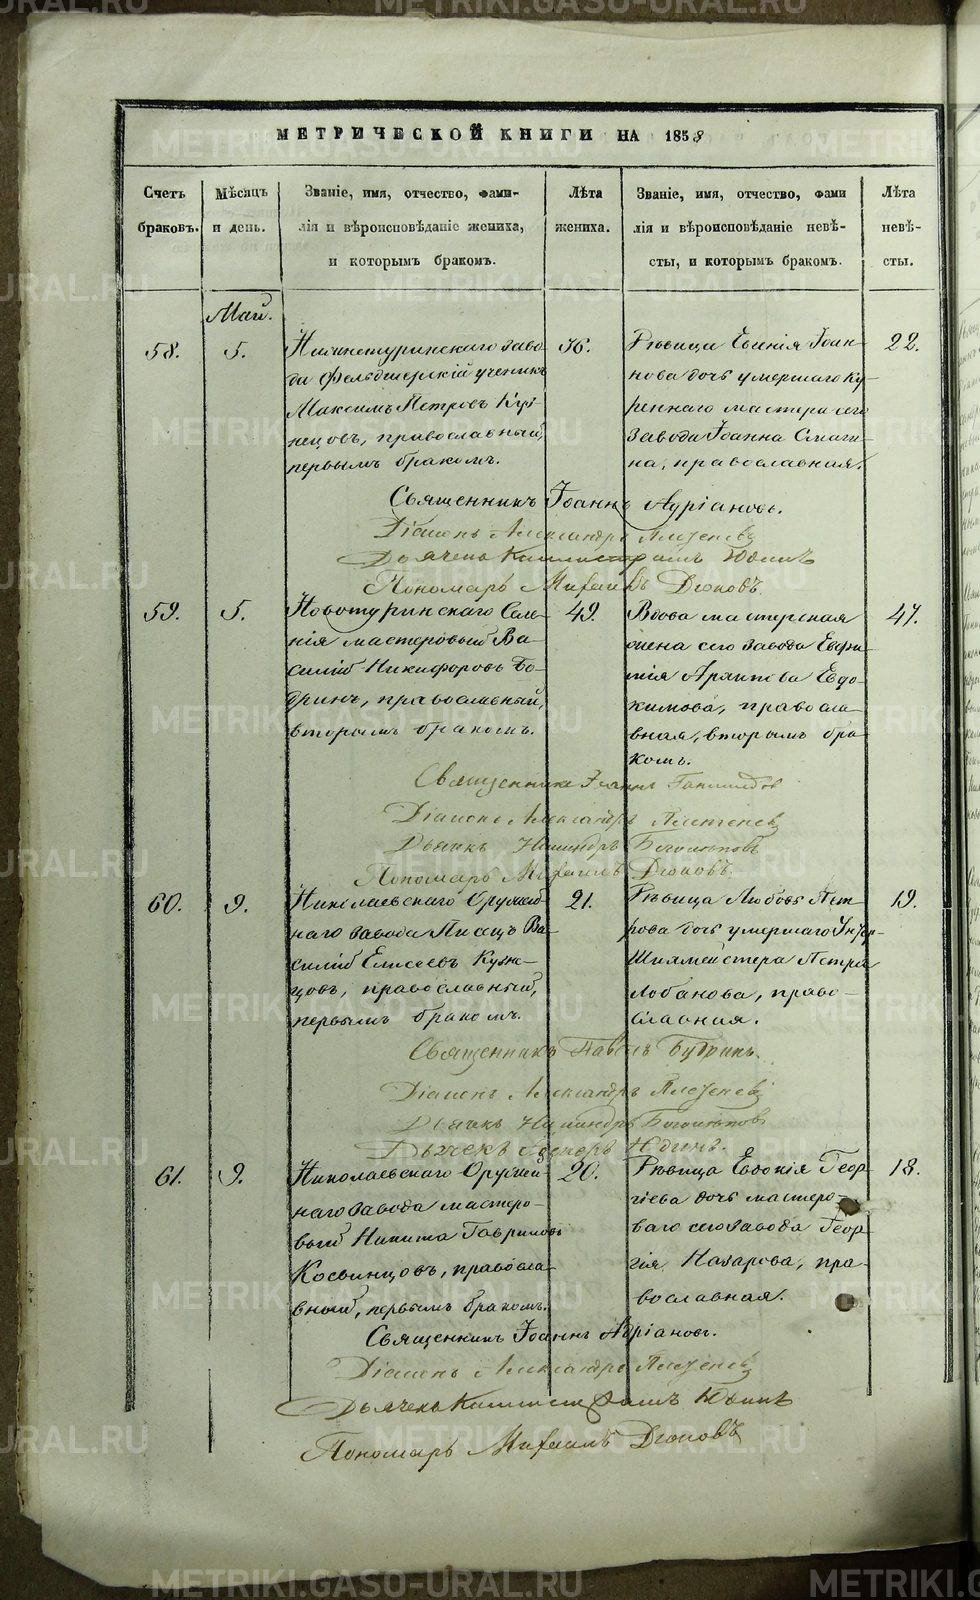 МЕТРИЧЕСКОЙ КНИГИ НА 1858
Счетъ браковъ.
Мѣсяцъ и день.
Званіе, имя, отчество, фами-
лія и вѣроисповѣданіе жениха,
и которымъ бракомъ.
Лѣта жениха.
Званіе, имя, отчество, фами
лія и вѣроисповѣданіе невѣ-
сты, и которымъ бракомъ.
Лѣта невѣ-
сты.
Май.
58.
5.
Нижнетуринскаго заво-
да фельдшерскій ученикъ
Максимъ Петровъ Куз-
нецовъ, православный,
первымъ бракомъ.
36.
Дѣвица Евгенія Іоан-
нова дочь умершаго Ку-
реннаго мастера сего
завода Іоанна Смаги-
на, православная.
22.
Священникъ Іоаннъ Адріановъ.
Діаконъ Александръ
Дьячекъ Каллистратъ Юдинъ
Пономарь Михаилъ Дюковъ.
59.
5.
Новотуринскаго Селе-
нія мастеровый Ва-
силій Никифоровъ Бо-
дринъ, православный,
вторымъ бракомъ.
49.
Вдова мастерская
жена сего завода Евфи-
мія Архипова Евдо-
кимова, православ-
ная, вторымъ бра-
комъ.
47.
Священникъ Іоаннъ
Діаконъ Александръ
Дьячекъ Никандръ Боголюбовъ
Пономарь Михаилъ Дюковъ.
60.
9.
Николаевскаго Оружей-
наго завода Писецъ Ва-
силій Елисеевъ Кузне-
цовъ, православный,
первымъ бракомъ.
21.
Дѣвица Любовь Пет-
рова дочь умершаго Унтер-
Шихмейстера Петра
Лобанова, право-
славная.
19.
Священникъ Павелъ Бубринъ.
Діаконъ Александръ
Дьячекъ Никандръ Боголюбовъ
Дьячекъ Юдинъ.
61.
9.
Николаевскаго Оружей-
наго завода мастеро-
вый Никита Гавриловъ
Косвинцовъ, правосла-
вный, первымъ бракомъ.
20.
Дѣвица Евдокія Геор-
гіева дочь мастеро-
ваго сего завода Геор-
гія Назарова, пра-
вославная.
18.
Священникъ Іоаннъ Адріановъ.
Діаконъ Александръ
Дьячекъ Каллистратъ Юдинъ
Пономарь Михаилъ Дюковъ
METRIKI.GASO-URAL.RU